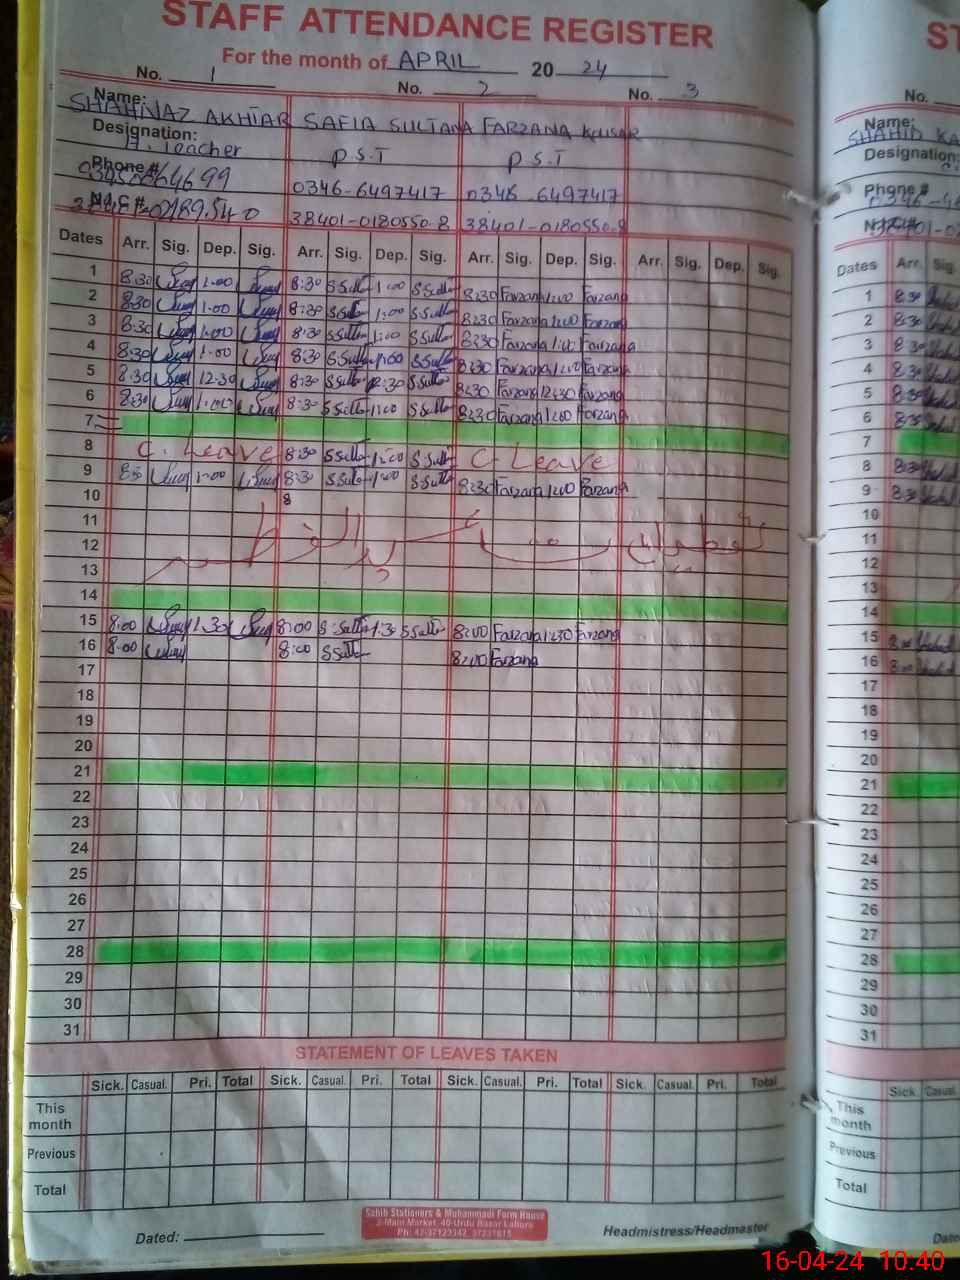 STAFF ATTENDANCE REGISTER
For the month of APRIL 20 24
No. 1 No. 2 No. 3
Name: SHAHNAZ AKHTAR SAFIA SULTANA FARZANA
Designation: H. Teacher P.S.T P.S.T
Phone # 0346-6497417 0346-6497417
N.I.C # 38401-0180550-8 38401-0180550-8
Dates Arr. Sig. Dep. Sig. Arr. Sig. Dep. Sig. Arr. Sig. Dep. Sig. Arr. Sig. Dep. Sig.
1 8:30 1:00 8:30 SSulta 1:00 SSulta 8:30 Farzana 1:00 Farzana
2 8:30 1:00 8:30 SSulta 1:00 SSulta 8:30 Farzana 1:00 Farzana
3 8:30 1:00 8:30 SSulta 1:00 SSulta 8:30 Farzana 1:00 Farzana
4 8:30 1:00 8:30 SSulta 1:00 SSulta 8:30 Farzana 1:00 Farzana
5 8:30 12:30 8:30 SSulta 12:30 SSulta 8:30 Farzana 12:30 Farzana
6 8:30 1:00 8:30 SSulta 1:00 SSulta 8:30 Farzana 1:00 Farzana
7
8 C. Leave 8:30 SSulta 1:00 SSulta C. Leave
9 8:30 1:00 8:30 SSulta 1:00 SSulta 8:30 Farzana 1:00 Farzana
10 8
11
12 تعطیلات عید الفطر
13
14
15 8:00 1:30 8:00 S.Sulta 1:30 SSulta 8:00 Farzana 1:30 Farzana
16 8:00 8:00 SSulta 8:00 Farzana
17
18
19
20
21
22
23
24
25
26
27
28
29
30
31
STATEMENT OF LEAVES TAKEN
Sick. Casual. Pri. Total Sick. Casual. Pri. Total Sick. Casual. Pri. Total Sick. Casual. Pri. Total
This month
Previous
Total
Sahib Stationers & Muhammadi Form House
2-Main Market, 40-Urdu Bazar Lahore
Dated: Headmistress/Headmaster
ST
No.
Name:
SHAHID
Designation:
Phone #
Dates Arr. Sig.
1 8:30
2 8:30
3 8:30
4 8:30
5 8:30
6 8:30
7
8 8:30
9 8:30
10
11
12
13
14
15 8:00
16 8:00
17
18
19
20
21
22
23
24
25
26
27
28
29
30
31
Sick. Casual.
This month
Previous
Total
16-04-24 10:40